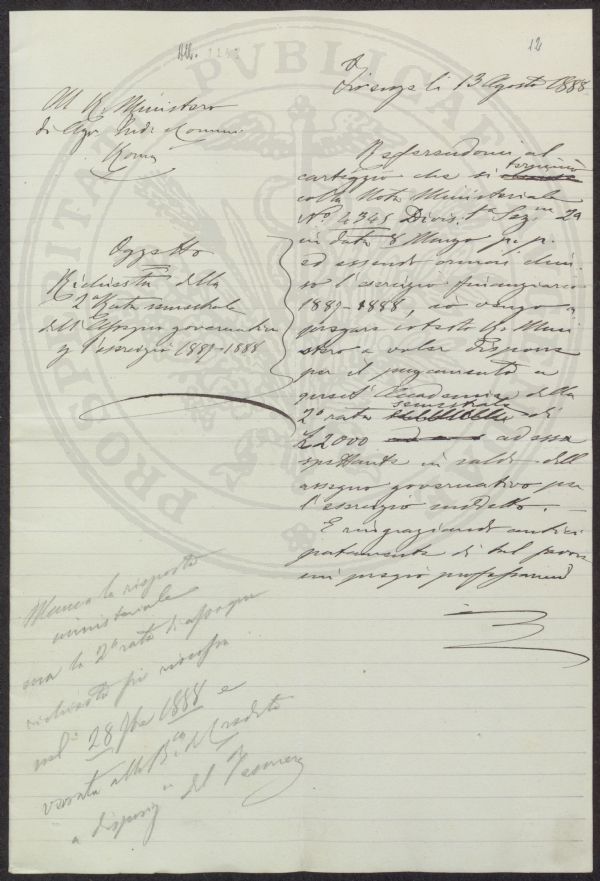 All. 1142
12
Firenze li 13 Agosto 1888
Al R. Ministero
di Agr. Ind. e Comm.
Roma
Oggetto
Richiesta della
2a Rata semestrale
dell'Assegno governativo
p l'esercizio 1887-1888
Referendomi al
carteggio che si terminò
colla Nota Ministeriale
No 4345 Divis. 1a Sez. 2a
in data 8 Marzo p. p.
ed essendo ormai chiu
so l'esercizio finanziario
1887-1888, io vengo a
pregare codesto R. Mini
stero a voler disporre
per il pagamento a
quest'Accademia della
2a rata semestrale di
£ 2000 ad essa
spettante in saldo dell'
assegno governativo per
l'esercizio suddetto.
E ringraziando antici
patamente di tal favore
mi pregio professarmi
Manca la risposta
ministeriale
ma la 2a rata di assegno
richiesta fu riscossa
nel 28 7bre 1888 e
versata alla Bca di Credito
a disposiz. del Tesoriere
PVBLICAE
PROSPERITATI